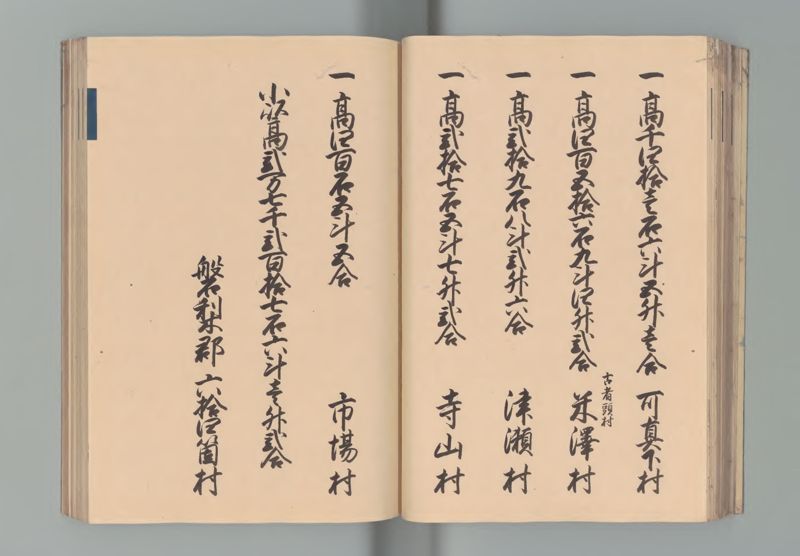 一高千四拾壱石六斗五升壱合 可真下村
一高四百五拾六石九斗四升弐合 古者頭村 米澤村
一高弐拾九石八斗弐升六合 津瀬村
一高弐拾七石五斗七升弐合 寺山村
一高四百石五斗五合 市場村
小以高弐万七千弐百拾七石六斗壱升弐合
磐梨郡 六拾四箇村